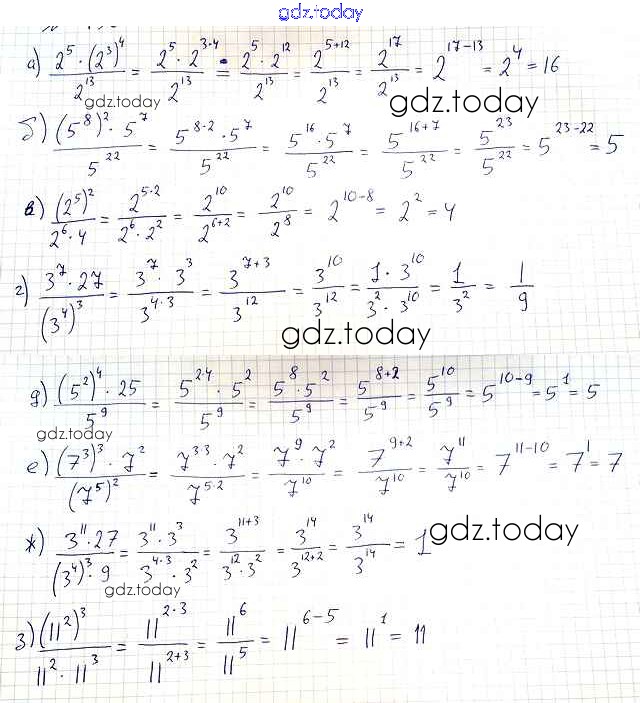 gdz.today
а) (2^5 · (2^3)^4)/2^13 = (2^5 · 2^(3·4))/2^13 = (2^5 · 2^12)/2^13 = 2^(5+12)/2^13 = 2^17/2^13 = 2^(17-13) = 2^4 = 16
gdz.today gdz.today
б) ((5^8)^2 · 5^7)/5^22 = (5^(8·2) · 5^7)/5^22 = (5^16 · 5^7)/5^22 = 5^(16+7)/5^22 = 5^23/5^22 = 5^(23-22) = 5
в) (2^5)^2/(2^6 · 4) = 2^(5·2)/(2^6 · 2^2) = 2^10/2^(6+2) = 2^10/2^8 = 2^(10-8) = 2^2 = 4
г) (3^7 · 27)/(3^4)^3 = (3^7 · 3^3)/3^(4·3) = 3^(7+3)/3^12 = 3^10/3^12 = (1 · 3^10)/(3^2 · 3^10) = 1/3^2 = 1/9
gdz.today
д) ((5^2)^4 · 25)/5^9 = (5^(2·4) · 5^2)/5^9 = (5^8 · 5^2)/5^9 = 5^(8+2)/5^9 = 5^10/5^9 = 5^(10-9) = 5^1 = 5
gdz.today
е) ((7^3)^3 · 7^2)/(7^5)^2 = (7^(3·3) · 7^2)/7^(5·2) = (7^9 · 7^2)/7^10 = 7^(9+2)/7^10 = 7^11/7^10 = 7^(11-10) = 7^1 = 7
ж) (3^11 · 27)/((3^4)^3 · 9) = (3^11 · 3^3)/(3^(4·3) · 3^2) = 3^(11+3)/(3^12 · 3^2) = 3^14/3^(12+2) = 3^14/3^14 = 1
gdz.today
gdz.today
з) (11^2)^3/(11^2 · 11^3) = 11^(2·3)/11^(2+3) = 11^6/11^5 = 11^(6-5) = 11^1 = 11